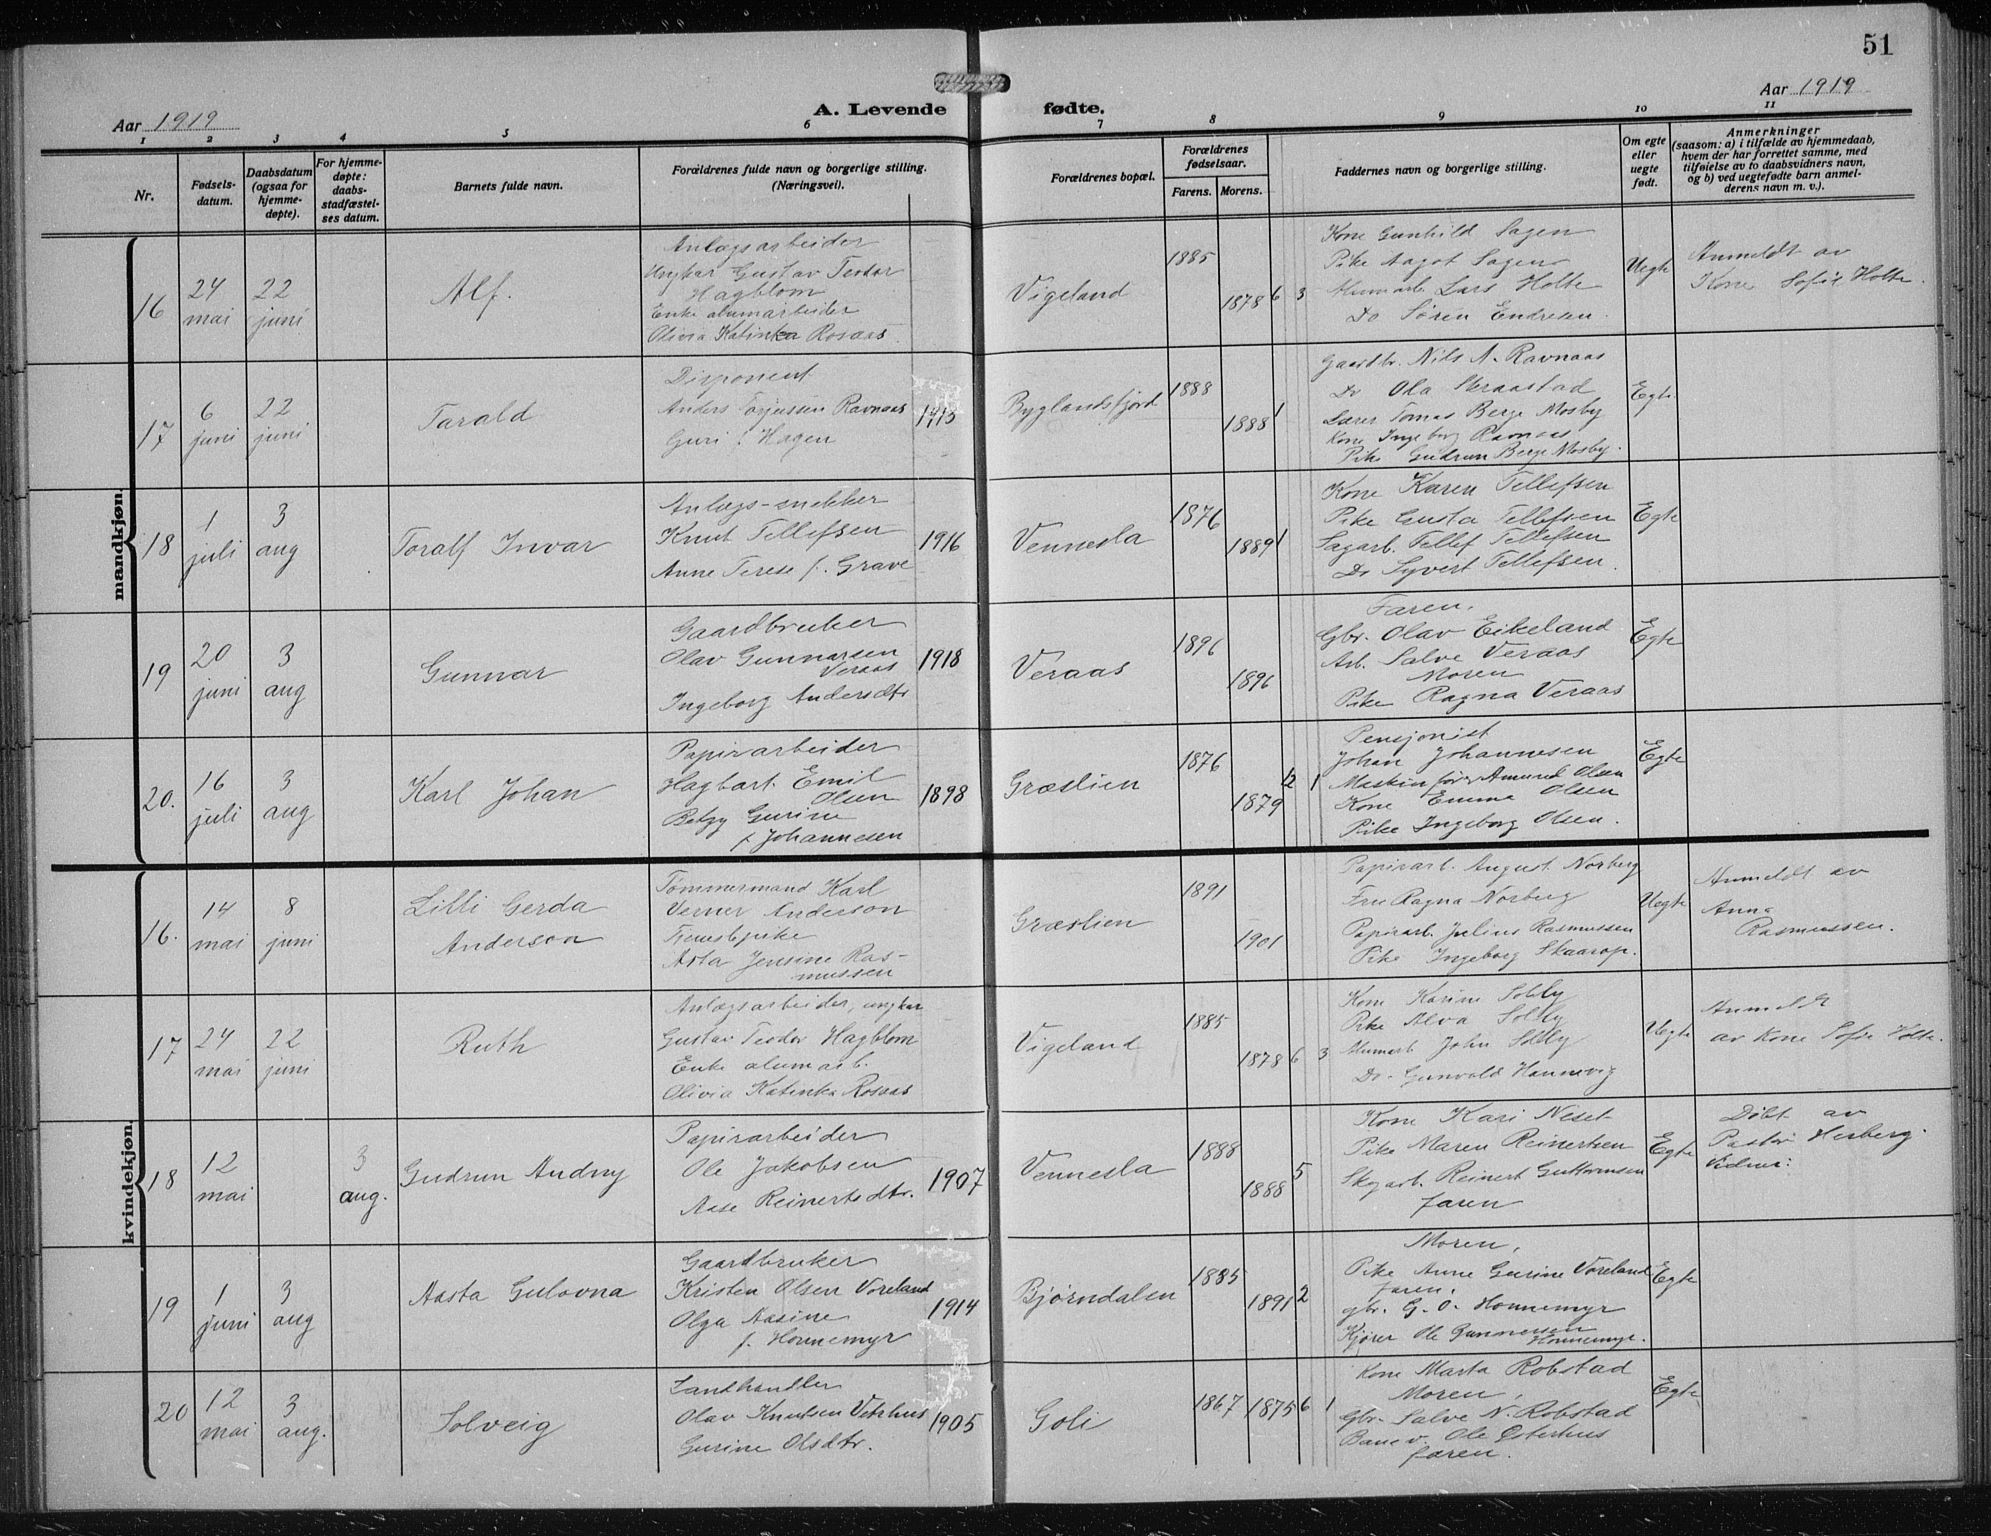 51
Aar 1919
A. Levende fødte.
Aar 1919
1 2 3 4 5 6 7 8 9 10 11
Nr.
Fødsels-
datum.
Daabsdatum
(ogsaa for
hjemme-
døpte).
For hjemme-
døpte:
daabs-
stadfæstel-
ses datum.
Barnets fulde navn.
Forældrenes fulde navn og borgerlige stilling.
(Næringsvei).
Forældrenes bopæl.
Forældrenes
fødselsaar.
Farens. Morens.
Faddernes navn og borgerlige stilling.
Om egte
eller
uegte
født.
Anmerkninger
(saasom: a) i tilfælde av hjemmedaab,
hvem der har forrettet samme, med
tilføielse av to daabsvidners navn,
og b) ved uegtefødte barn anmel-
derens navn m. v.).
mandkjøn.
16
24
mai
22
juni
Alf.
Anlægsarbeider
Ungkar Gustav Teodor
Hagblom
Enke alumarbeider
Olivia Katinka Rosaas.
Vigeland
1885
1878 6 3
Kone Gunhild Sagen
Pike Aagot Sagen
Alumarb. Lars Holte
Do Søren Endresen.
Uegte
Anmeldt av
Kone Sofie Holte.
17
6
juni
22
juni
Tarald
Disponent
Anders Torjussen Ravnaas
Guri f. Hagen
1913
Byglandsfjord
1888
1888 1
Gaardbr. Nils A. Ravnaas
Do Ola Skraastad
Lærer Tomas Berge Mosby
Kone Ingeborg Ravnaas
Pike Gudrun Berge Mosby.
Egte
18
1
juli
3
aug
Toralf Invar
Anlægs-snekker
Knut Tellefsen
Anne Terese f. Grave
1916
Vennesla
1876
1889 1
Kone Karen Tellefsen
Pike Gusta Tellefsen
Sagarb. Tellef Tellefsen
Do Syvert Tellefsen.
Egte
19
20
juni
3
aug
Gunnar
Gaardbruker
Olav Gunnarsen
Veraas
Ingeborg Andersdtr
1918
Veraas
1896
1896
Faren.
Gbr. Olav Eikeland
Arb. Salve Veraas
Moren
Pike Ragna Veraas
Egte
20.
16
juli
3
aug
Karl Johan
Papirarbeider
Hagbart Emil
Olsen
Betzy Gurine
f. Johannesen
1898
Græslien
1876
1879 12 1
Pensjonist
Johan Johannesen
Maskinfører Amund Olsen
Kone Emma Olsen
Pike Ingeborg Olsen.
Egte
kvindekjøn.
16.
14
mai
8
juni
Lilli Gerda
Anderson
Tømmermand Karl
Verner Anderson
Tjenestepike
Asta Jensine Ras-
mussen
Græslien
1891
1901
Papirarb. August Norberg
Fru Ragna Norberg
Papirarb. Julius Rasmussen
Pike Ingeborg Skaarop.
Uegte
Anmeldt av
Anna
Rasmussen.
17
24
mai
22
juni
Ruth
Anlægsarbeider, ungkar
Gustav Teodor Hagblom
Enke alumarb.
Olivia Katinka Rosaas
Vigeland
1885
1878 6 3
Kone Karine
Pike Alva
Alumarb John
Do. Gunvald Hannevig
Uegte
Anmeldt
av Kone Sofie Holte.
18
12
mai
3
aug.
Gudrun Audny
Papirarbeider
Ole Jakobsen
Aase Reinertsdtr.
1907
Vennesla
1888
1888 5
Kone Kari Neset
Pike Maren Reinertsen
Skogarb. Reinert Guttormsen
faren
Egte
Døbt av
Pastor Hesberg.
19
1
juni
3
aug
Aasta Gulovna
Gaardbruker
Kristen Olsen Voreland
Olga Aasine
f. Honnemyr
1914
Bjørndalen
1885
1891 2
Moren,
Pike Anne Gurine Voreland
faren,
gbr. G. O. Honnemyr
Kjører Ole Gunnersen
Honnemyr.
Egte
20
12
mai
3
aug.
Solveig
Landhandler
Olav Knutsen Vetrhus
Gurine Olsdtr.
1905
Goli
1867
1875 6 1
Kone Marta Robstad
Moren,
Gbr. Salve N. Robstad
Banev. Ole Osterhus
faren.
Egte